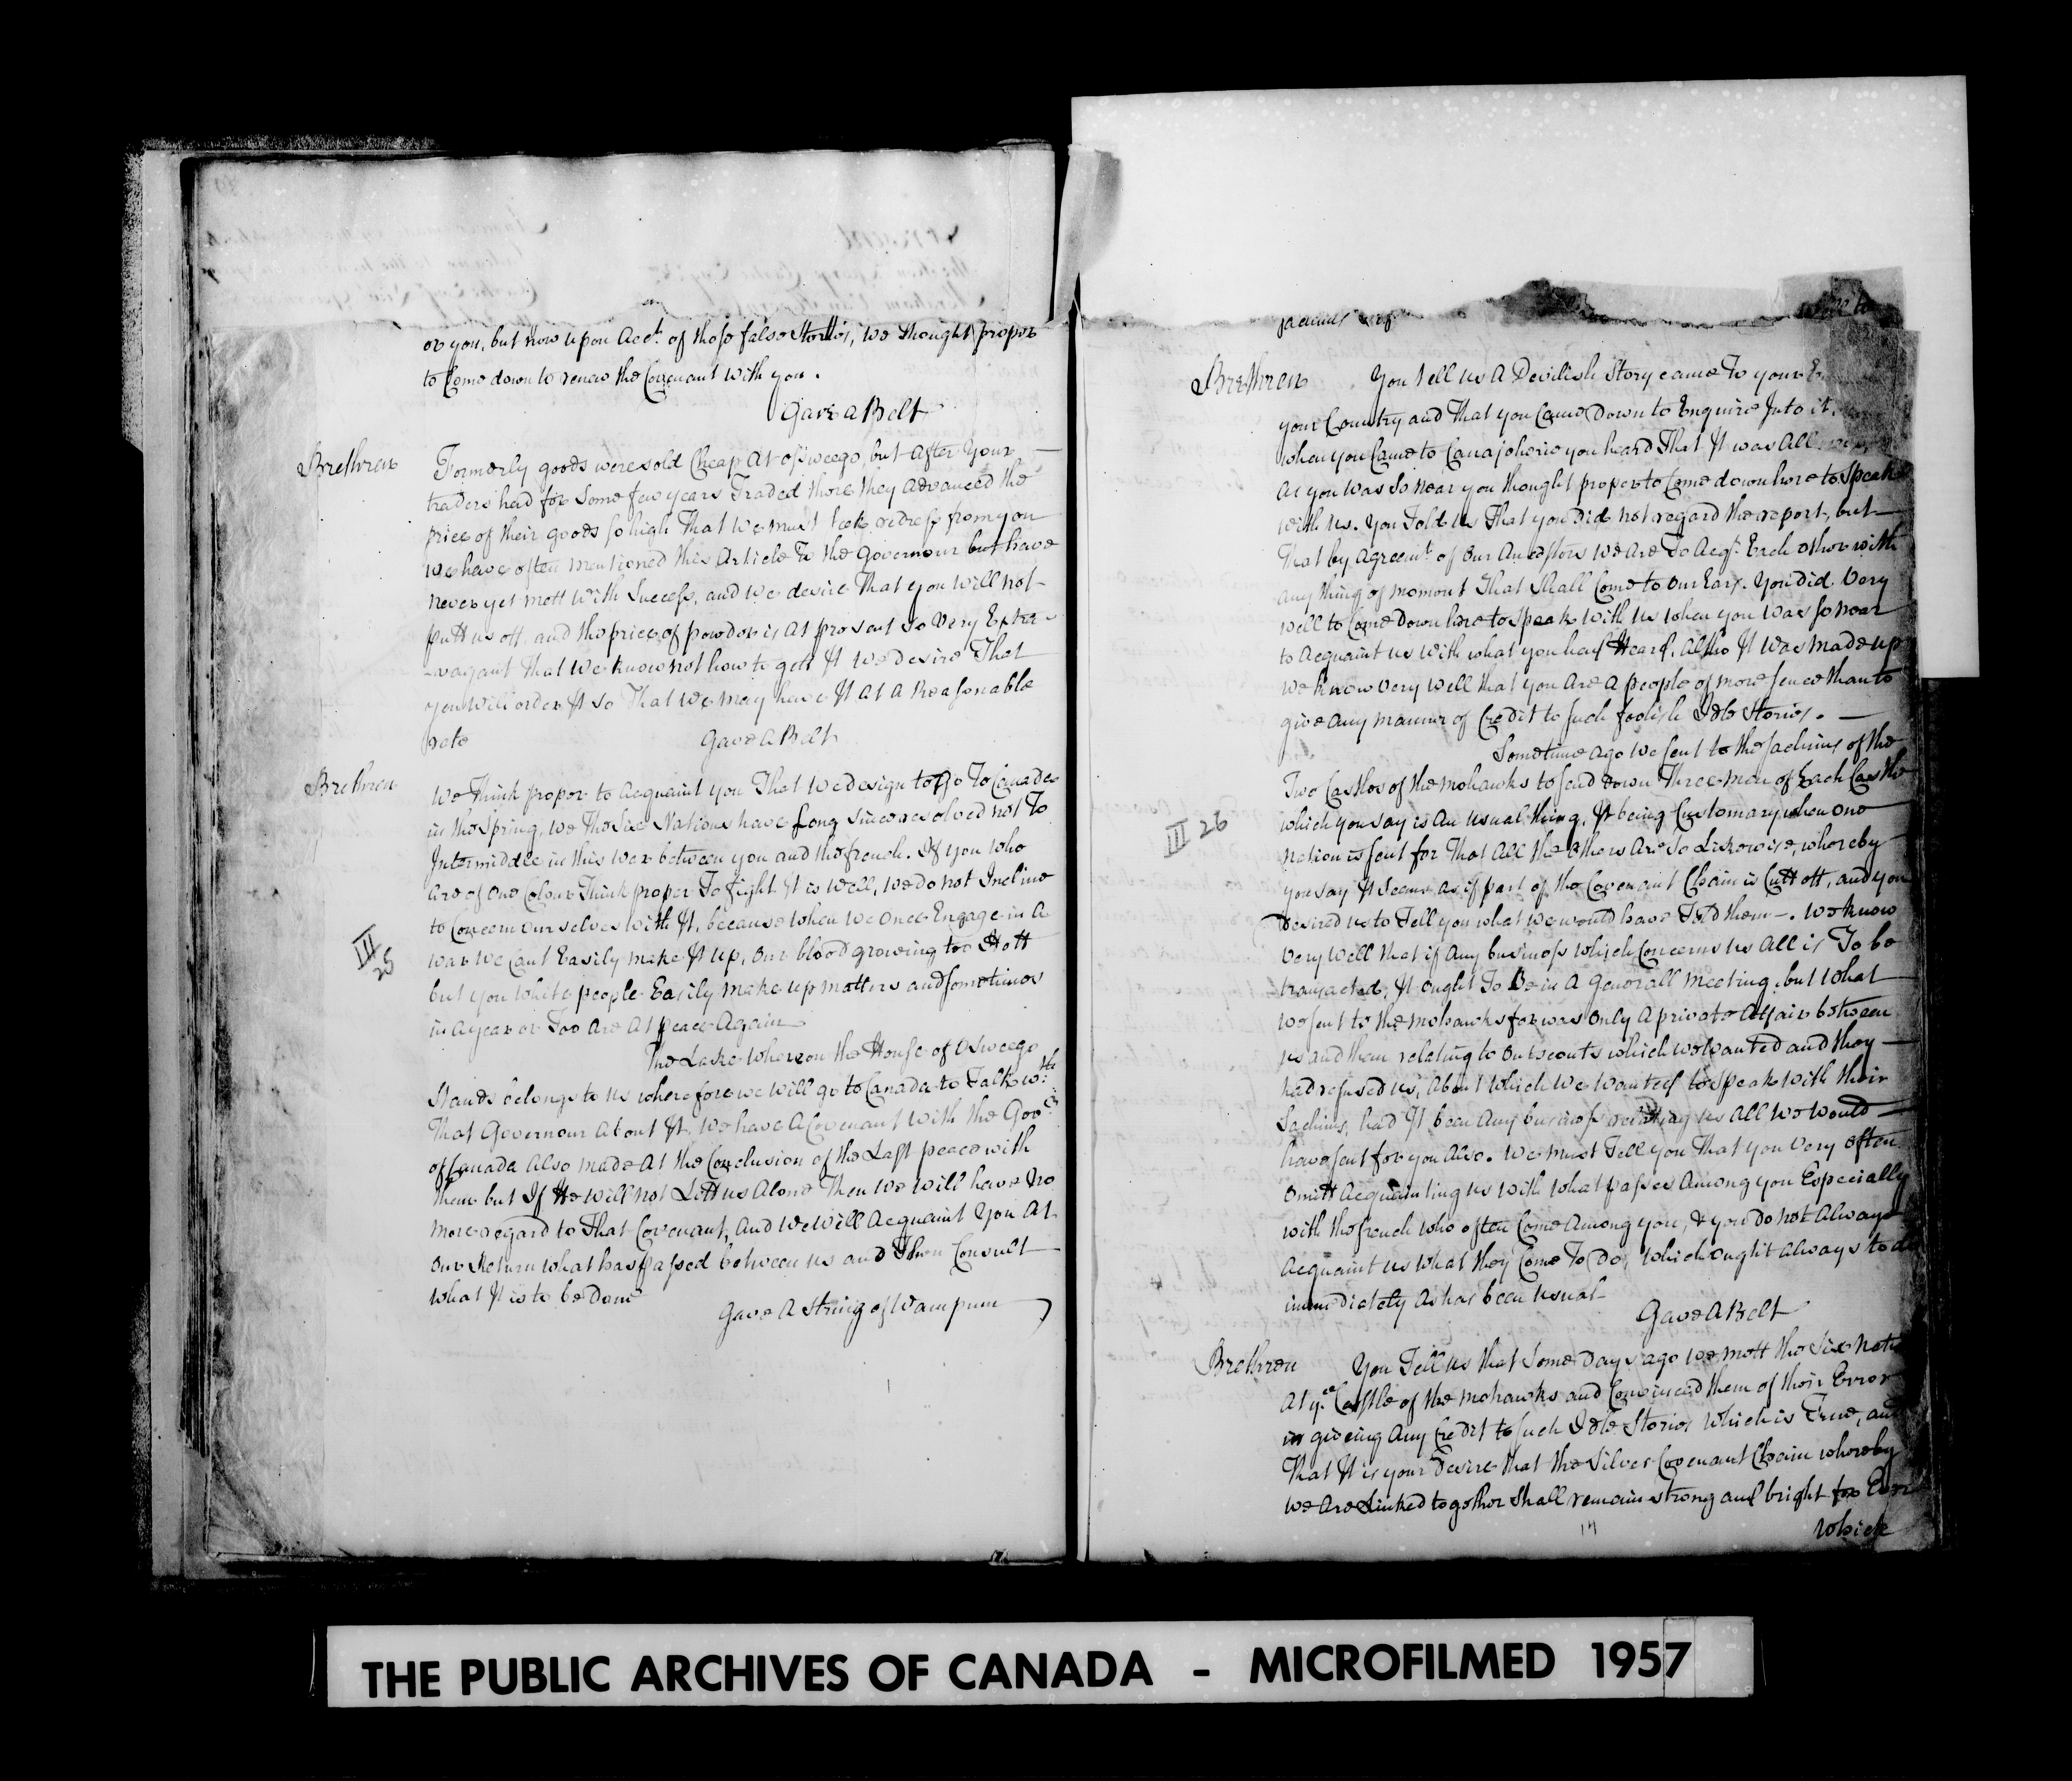 or you, but now upon Acct. of those false Stories, we thought proper
to Come down to renew the Covenant with you.
Gave a Belt
Brethren
Formerly goods were sold Cheap At osweego, but after Your
traders had for some few years Traded there they advanced the
price of their goods so high That We must seek redress from you
we have often mentioned this Article To the Governour but have
never yet mett with Success, and we desire That you will not
putt us off, and the price of powder is At present so Very Extra-
-vagant That we know not how to gett It we desire That
you will order It so That we may have It At A Reasonable
rate
Gave A Belt
Brethren
We Think proper to Acquaint you That we design to Go To Canada
in the Spring, we The Six Nations have Long since resolved not To
Intermiddle in this War between you and the french. If you who
Are of One Colour Think proper To fight It is Well, we do not Incline
to Concern Our selves with It, because when we Once Engage in A
war we Cant Easily make It up, Our blood growing too Hott
but you white people Easily make up matters and sometimes
in A year or Too Are At peace Again
III
25
The Lake whereon the House of Osweego
Stands belongs to us wherefore we will go to Canada to Talk wth.
That Governour About It. We have A Covenant with the Govr.
of Canada Also made At the Conclusion of the Last peace with
them but If He will not Lett us Alone Then We will have no
more regard to That Covenant, And We will Acquaint You At
Our Return what has passed between us and Then Consult
what It is to be Done
Gave A String of Wampum
Brethren
You tell us A Devilish Story came To your
your Country and That you Came Down to Enquire Into it,
when you Came to Canajoherie you heard That It was All
As you was So near you thought proper to Come down here to Speak
with us. You Told us That you did not regard the report, but
That by Agreemt. of Our Ancestors We Are To Acqt. Each other with
any thing of moment That Shall Come to Our Ears. You did Very
well to Come Down here to speak with us when you was so near
to Acquaint us with what you had Heard, Altho It was made up
we know very well that you Are A people of more sence than to
give Any manner of Credit to such foolish Idle Stories.
Sometime Ago We sent to the Sachims of the
Two Castles of the Mohawks to send down Three men of Each Castle
which you say is An usual thing, It being Customary when One
Nation is sent for That All the Others Are So Likewise, whereby
you say It Seems as if part of the Covenant Chain is Cutt off, and you
III 26
Desired us to Tell you what we would have Told them. We know
Very Well that if Any business which Concerns us All is To be
transacted, It ought To Be in A Generall meeting, but what
we sent to the Mohawks for was Only A private Affair between
us and them relating to Outscouts which we Wanted and they
had refused us, About which We wanted to speak with their
Sachims, had It been Any business relating us All We Would
have sent for you Also. We must Tell you That you Very often
Omitt Acquainting us with what passes Among you Especially
with the french who often Come Among you, & you do not Always
Acquaint us what they Come To Do, which ought Always to do
immediately As has been usual
Gave A Belt
Brethren
You Tell us that Some Days ago we mett the Six Nats
At ye. Castle of the Mohawks and Convinced them of their Error
in giveing Any Credit to such Idle Stories Which is True, and
That It is your Desire that the Silver Covenant Chain whereby
We Are Linked together Shall remain strong and bright for Ever
14
Which
THE PUBLIC ARCHIVES OF CANADA - MICROFILMED 1957